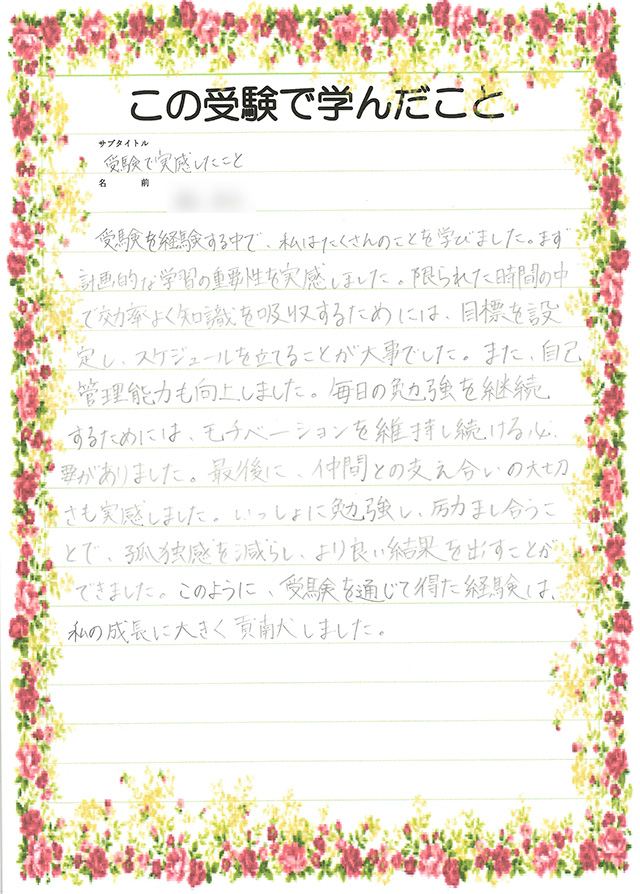 この受験で学んだこと
サブタイトル
受験で実感したこと
名前
受験を経験する中で、私はたくさんのことを学びました。まず
計画的な学習の重要性を実感しました。限られた時間の中
で効率よく知識を吸収するためには、目標を設
定し、スケジュールを立てることが大事でした。また、自己
管理能力も向上しました。毎日の勉強を継続
するためには、モチベーションを維持し続ける必
要がありました。最後に、仲間との支え合いの大切
さも実感しました。いっしょに勉強し、励まし合うこ
とで、孤独感を減らし、より良い結果を出すことが
できました。このように、受験を通じて得た経験は、
私の成長に大きく貢献しました。